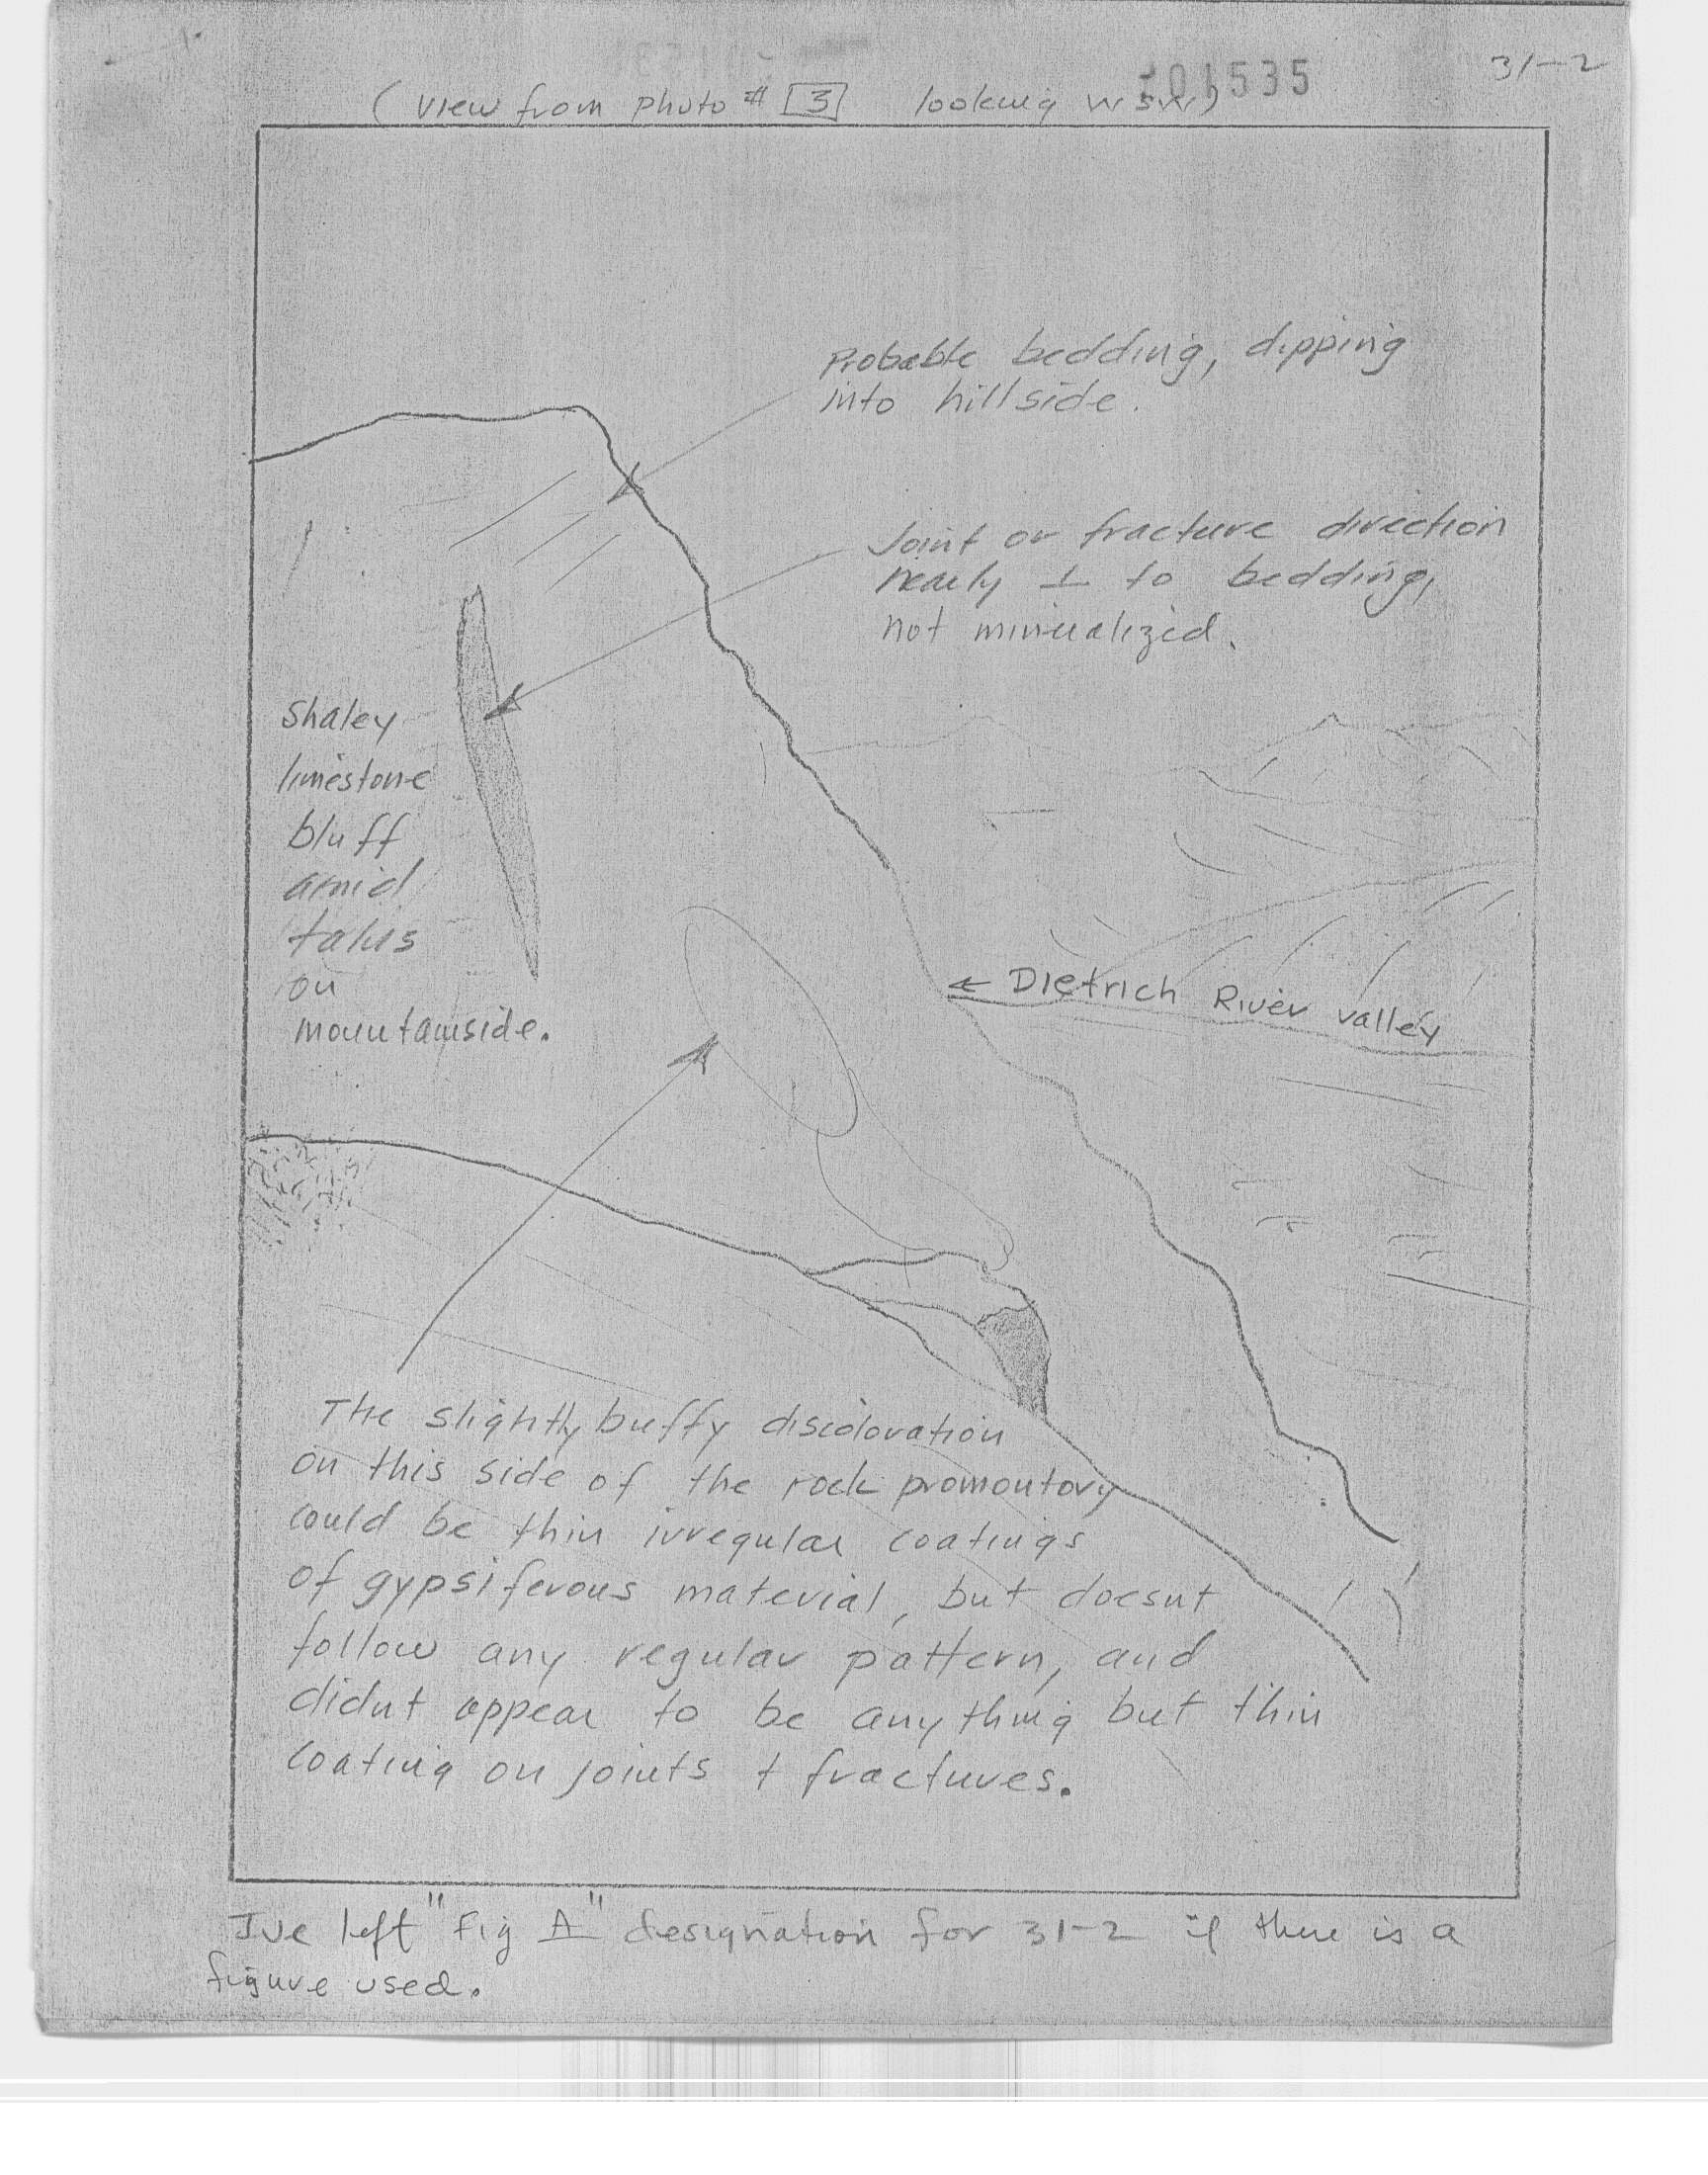 31-2
01535
(view from photo # 3 looking WSW)
Probable bedding, dipping
into hillside.
Joint or fracture direction
nearly ⊥ to bedding,
not mineralized.
Shaley
limestone
bluff
amid
talus
on
mountainside.
← Dietrich River valley
The slightly buffy discoloration
on this side of the rock promontory
could be thin irregular coatings
of gypsiferous material, but doesnt
follow any regular pattern, and
didnt appear to be anything but thin
coating on joints + fractures.
Ive left "Fig A" designation for 31-2 if there is a
figure used.